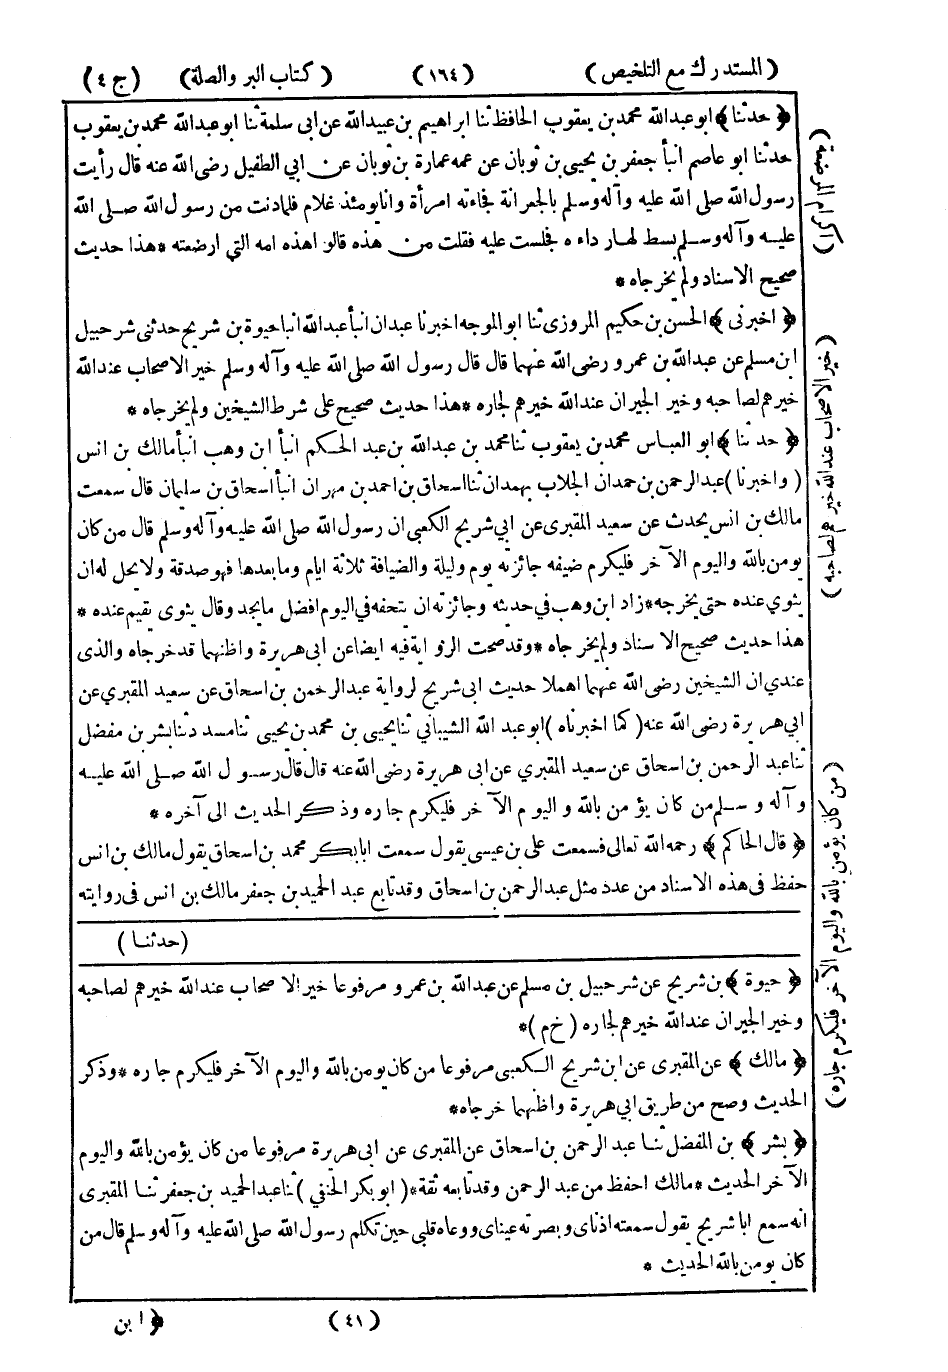 (المستدرك مع التلخيص) (١٦٤) (كتاب البر والصلة) (ج ٤)
﴿ حدثنا ﴾ ابو عبدالله محمد بن يعقوب الحافظ ثنا ابراهيم بن عبيدالله عن ابى سلمة ثنا ابو عبدالله محمد بن يعقوب
حدثنا ابو عاصم انبأ جعفر بن يحيى بن ثوبان عن عمه عمارة بن ثوبان عن ابي الطفيل رضى الله عنه قال رأيت
رسول الله صلى الله عليه وآله وسلم بالجعرانة فجاءته امرأة وانا يومئذ غلام فلما دنت من رسول الله صلى الله
عليه وآله وسلم بسط لها رداءه فجلست عليه فقلت من هذه قالوا هذه امه التي ارضعته * هذا حديث
صحيح الاسناد ولم يخرجاه *
﴿ اخبرنى ﴾ الحسن بن حكيم المروزى ثنا ابو الموجه اخبرنا عبدان انبأ عبدالله انبا حيوة بن شريح حدثنى شرحبيل
ابن مسلم عن عبدالله بن عمرو رضى الله عنهما قال قال رسول الله صلى الله عليه وآله وسلم خير الاصحاب عندالله
خيرهم لصاحبه وخير الجيران عندالله خيرهم لجاره * هذا حديث صحيح على شرط الشيخين ولم يخرجاه *
﴿ حدثنا ﴾ ابو العباس محمد بن يعقوب ثنا محمد بن عبدالله بن عبد الحكم انبأ ابن وهب انبأ مالك بن انس
(واخبرنا) عبدالرحمن بن حمدان الجلاب بهمدان ثنا اسحاق بن احمد بن مهران انبأ اسحاق بن سليمان قال سمعت
مالك بن انس يحدث عن سعيد المقبرى عن ابي شريح الكعبى ان رسول الله صلى الله عليه وآله وسلم قال من كان
يومن بالله واليوم الآخر فليكرم ضيفه جائزته يوم وليلة والضيافة ثلاثة ايام وما بعدها فهو صدقة ولا يحل له ان
يثوي عنده حتى يخرجه * زاد ابن وهب في حديثه وجائزته ان يتحفه في اليوم افضل ما يجد وقال يثوى يقيم عنده *
هذا حديث صحيح الاسناد ولم يخرجاه * وقد صحت الرواية فيه ايضا عن ابى هريرة واظنهما قد خرجاه والذى
عندي ان الشيخين رضى الله عنهما اهملا حديث ابى شريح لرواية عبدالرحمن بن اسحاق عن سعيد المقبري عن
ابي هريرة رضى الله عنه (كما اخبرناه) ابو عبد الله الشيباني ثنا يحيى بن محمد بن يحيى ثنا مسدد ثنا بشر بن مفضل
ثنا عبد الرحمن بن اسحاق عن سعيد المقبري عن ابى هريرة رضى الله عنه قال قال رسول الله صلى الله عليه
وآله وسلم من كان يؤمن بالله واليوم الآخر فليكرم جاره وذكر الحديث الى آخره *
﴿ قال الحاكم ﴾ رحمه الله تعالى فسمعت على بن عيسى يقول سمعت ابا بكر محمد بن اسحاق يقول مالك بن انس
حفظ فى هذه الاسناد من عدد مثل عبدالرحمن بن اسحاق وقد تابع عبد الحميد بن جعفر مالك بن انس فى روايته
(حدثنا)
﴿ حيوة ﴾ بن شريح عن شرحبيل بن مسلم عن عبدالله بن عمرو مرفوعا خير الاصحاب عندالله خيرهم لصاحبه
وخير الجيران عندالله خيرهم لجاره (خ م) *
﴿ مالك ﴾ عن المقبرى عن ابن شريح الكعبى مرفوعا من كان يومن بالله واليوم الآخر فليكرم جاره * وذكر
الحديث وصح من طريق ابي هريرة واظنهما خرجاه *
﴿ بشر ﴾ بن المفضل ثنا عبد الرحمن بن اسحاق عن المقبرى عن ابى هريرة مرفوعا من كان يؤمن بالله واليوم
الآخر الحديث * مالك احفظ من عبد الرحمن وقد تابعه ثقة * (ابو بكر الحنفي) ثنا عبد الحميد بن جعفر ثنا المقبرى
انه سمع ابا شريح يقول سمعته اذناى وبصرته عيناى ووعاه قلبى حين تكلم رسول الله صلى الله عليه وآله وسلم قال من
كان يومن بالله الحديث *
(اكرام المرضعة)
(خير الاصحاب عندالله خيرهم لصاحبه)
(من كان يؤمن بالله واليوم الآخر فليكرم جاره)
(٤١) ﴿ ابن